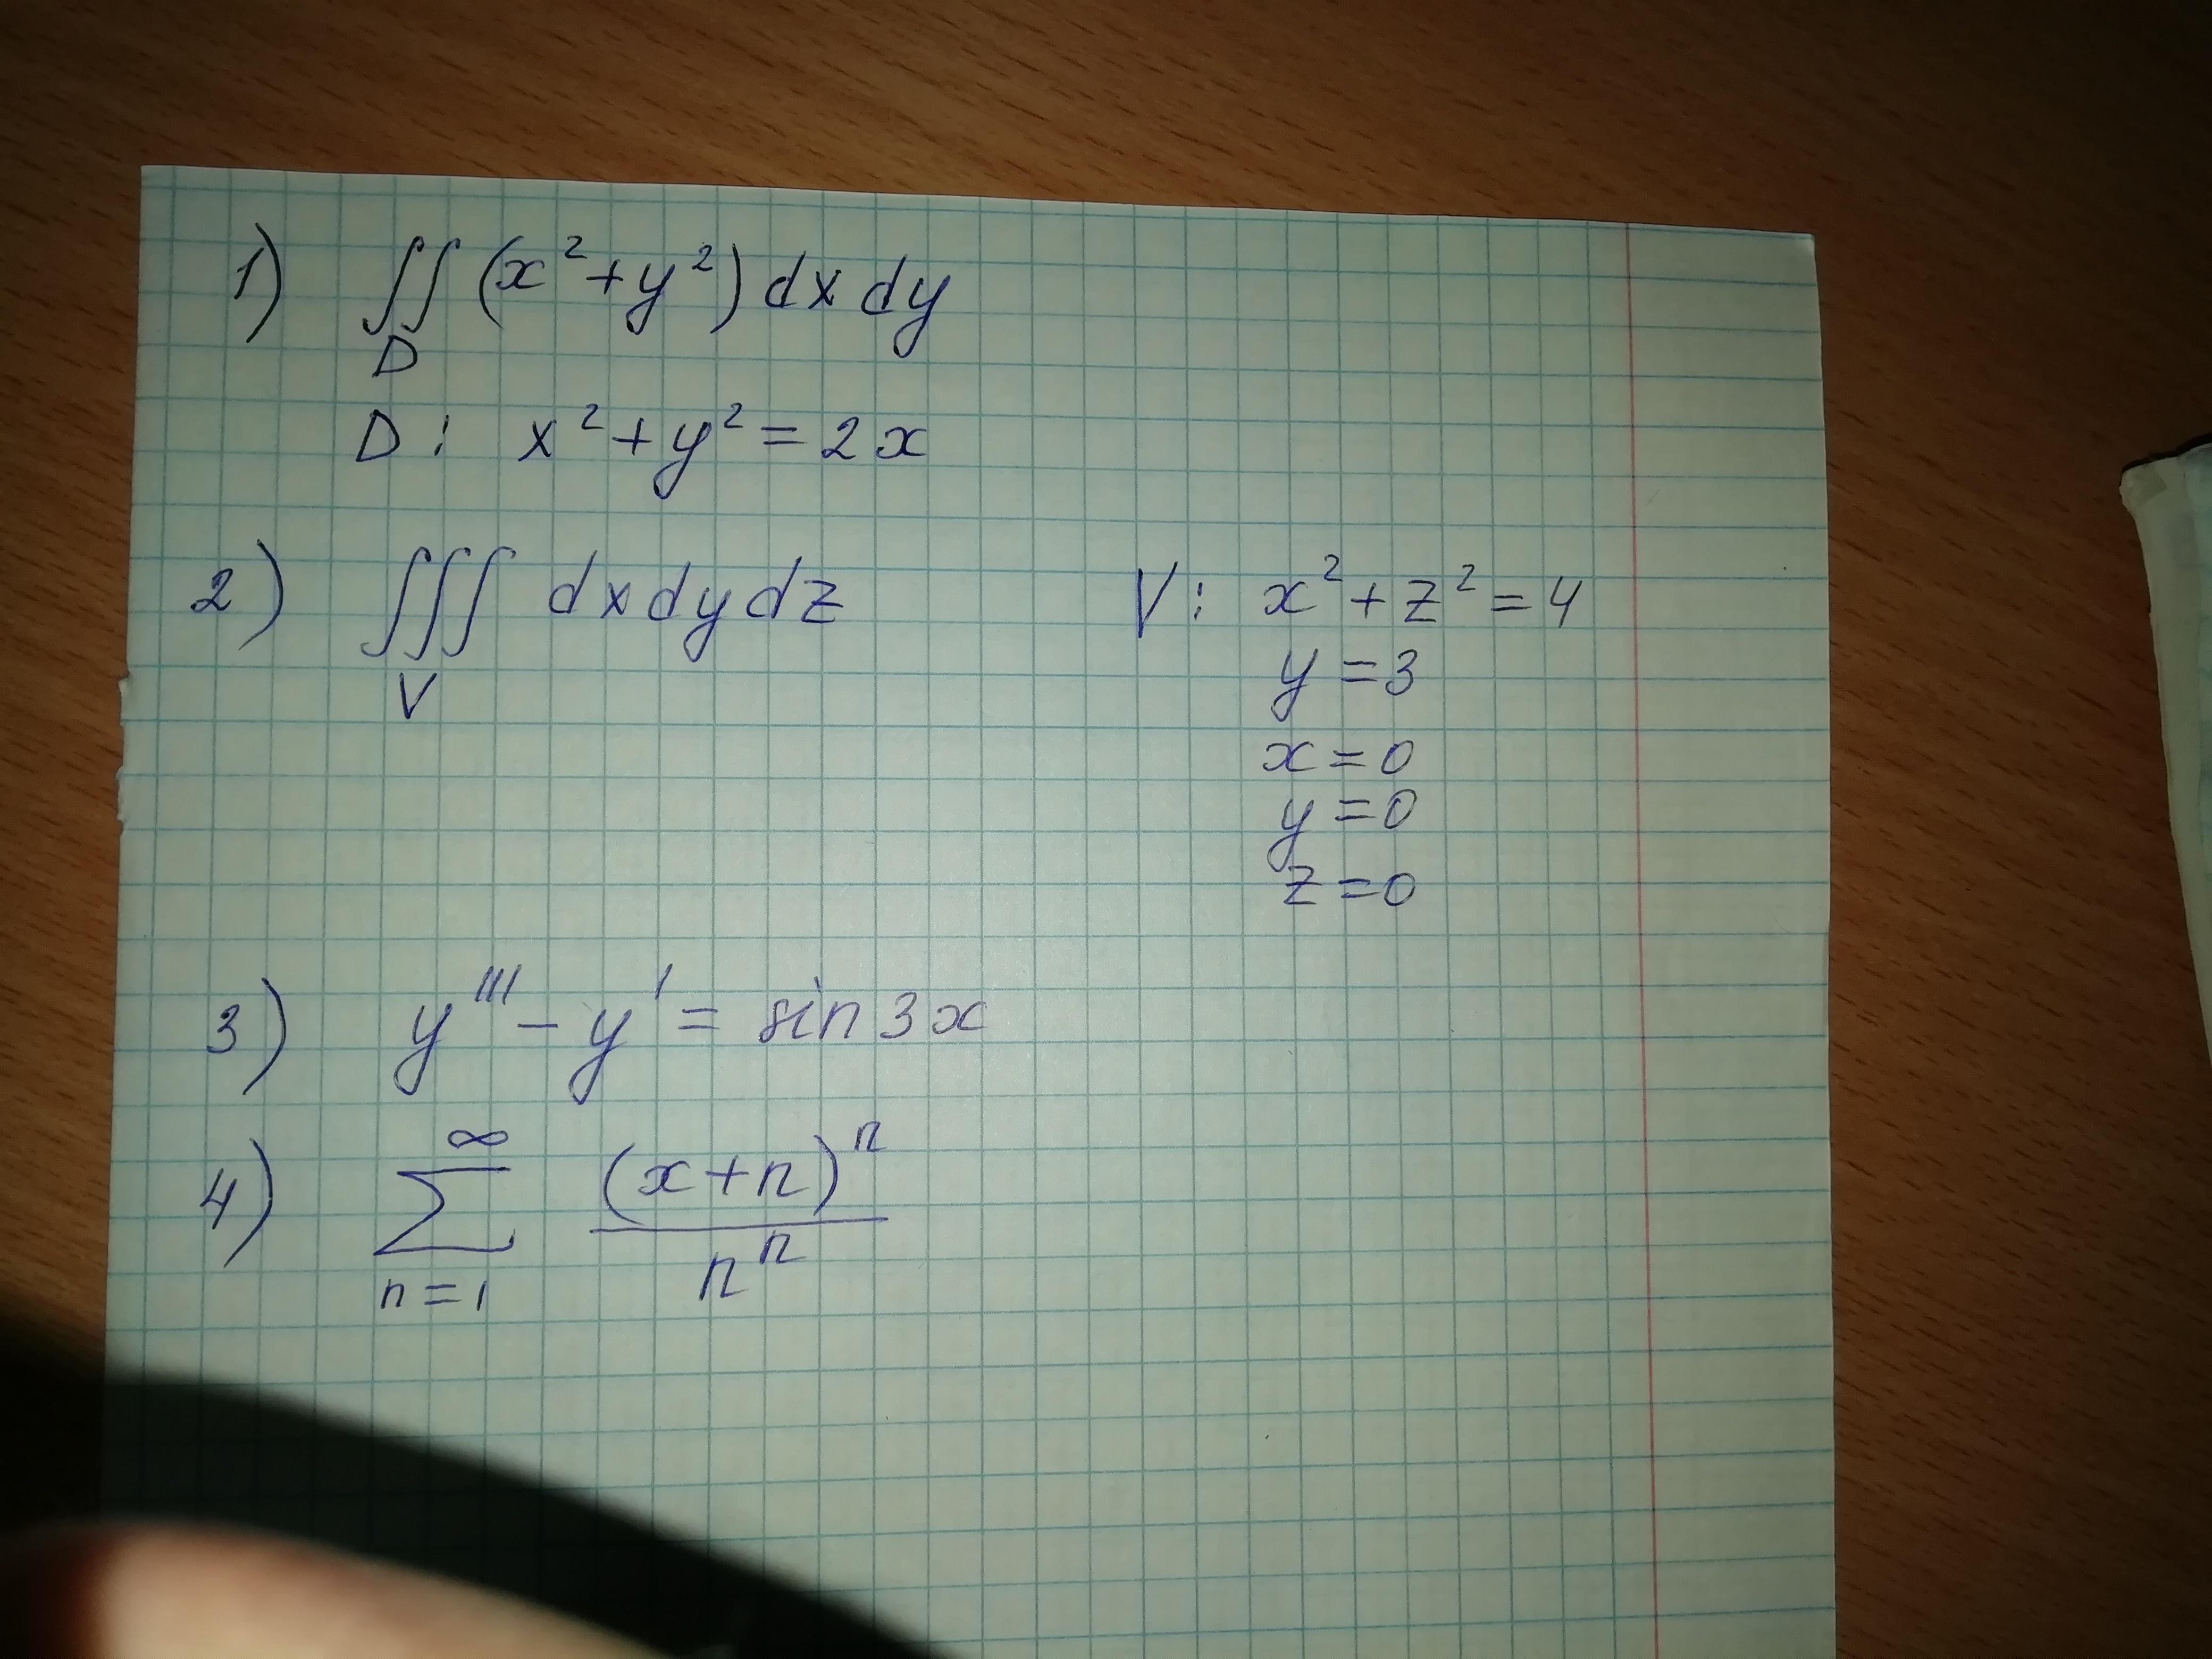 1) ∬ (x² + y²) dx dy
D
D : x² + y² = 2x
2) ∭ dx dy dz V : x² + z² = 4
V
y = 3
x = 0
y = 0
z = 0
3) y''' − y' = sin 3x
4) ∑_{n=1}^{∞} (x+n)ⁿ / nⁿ